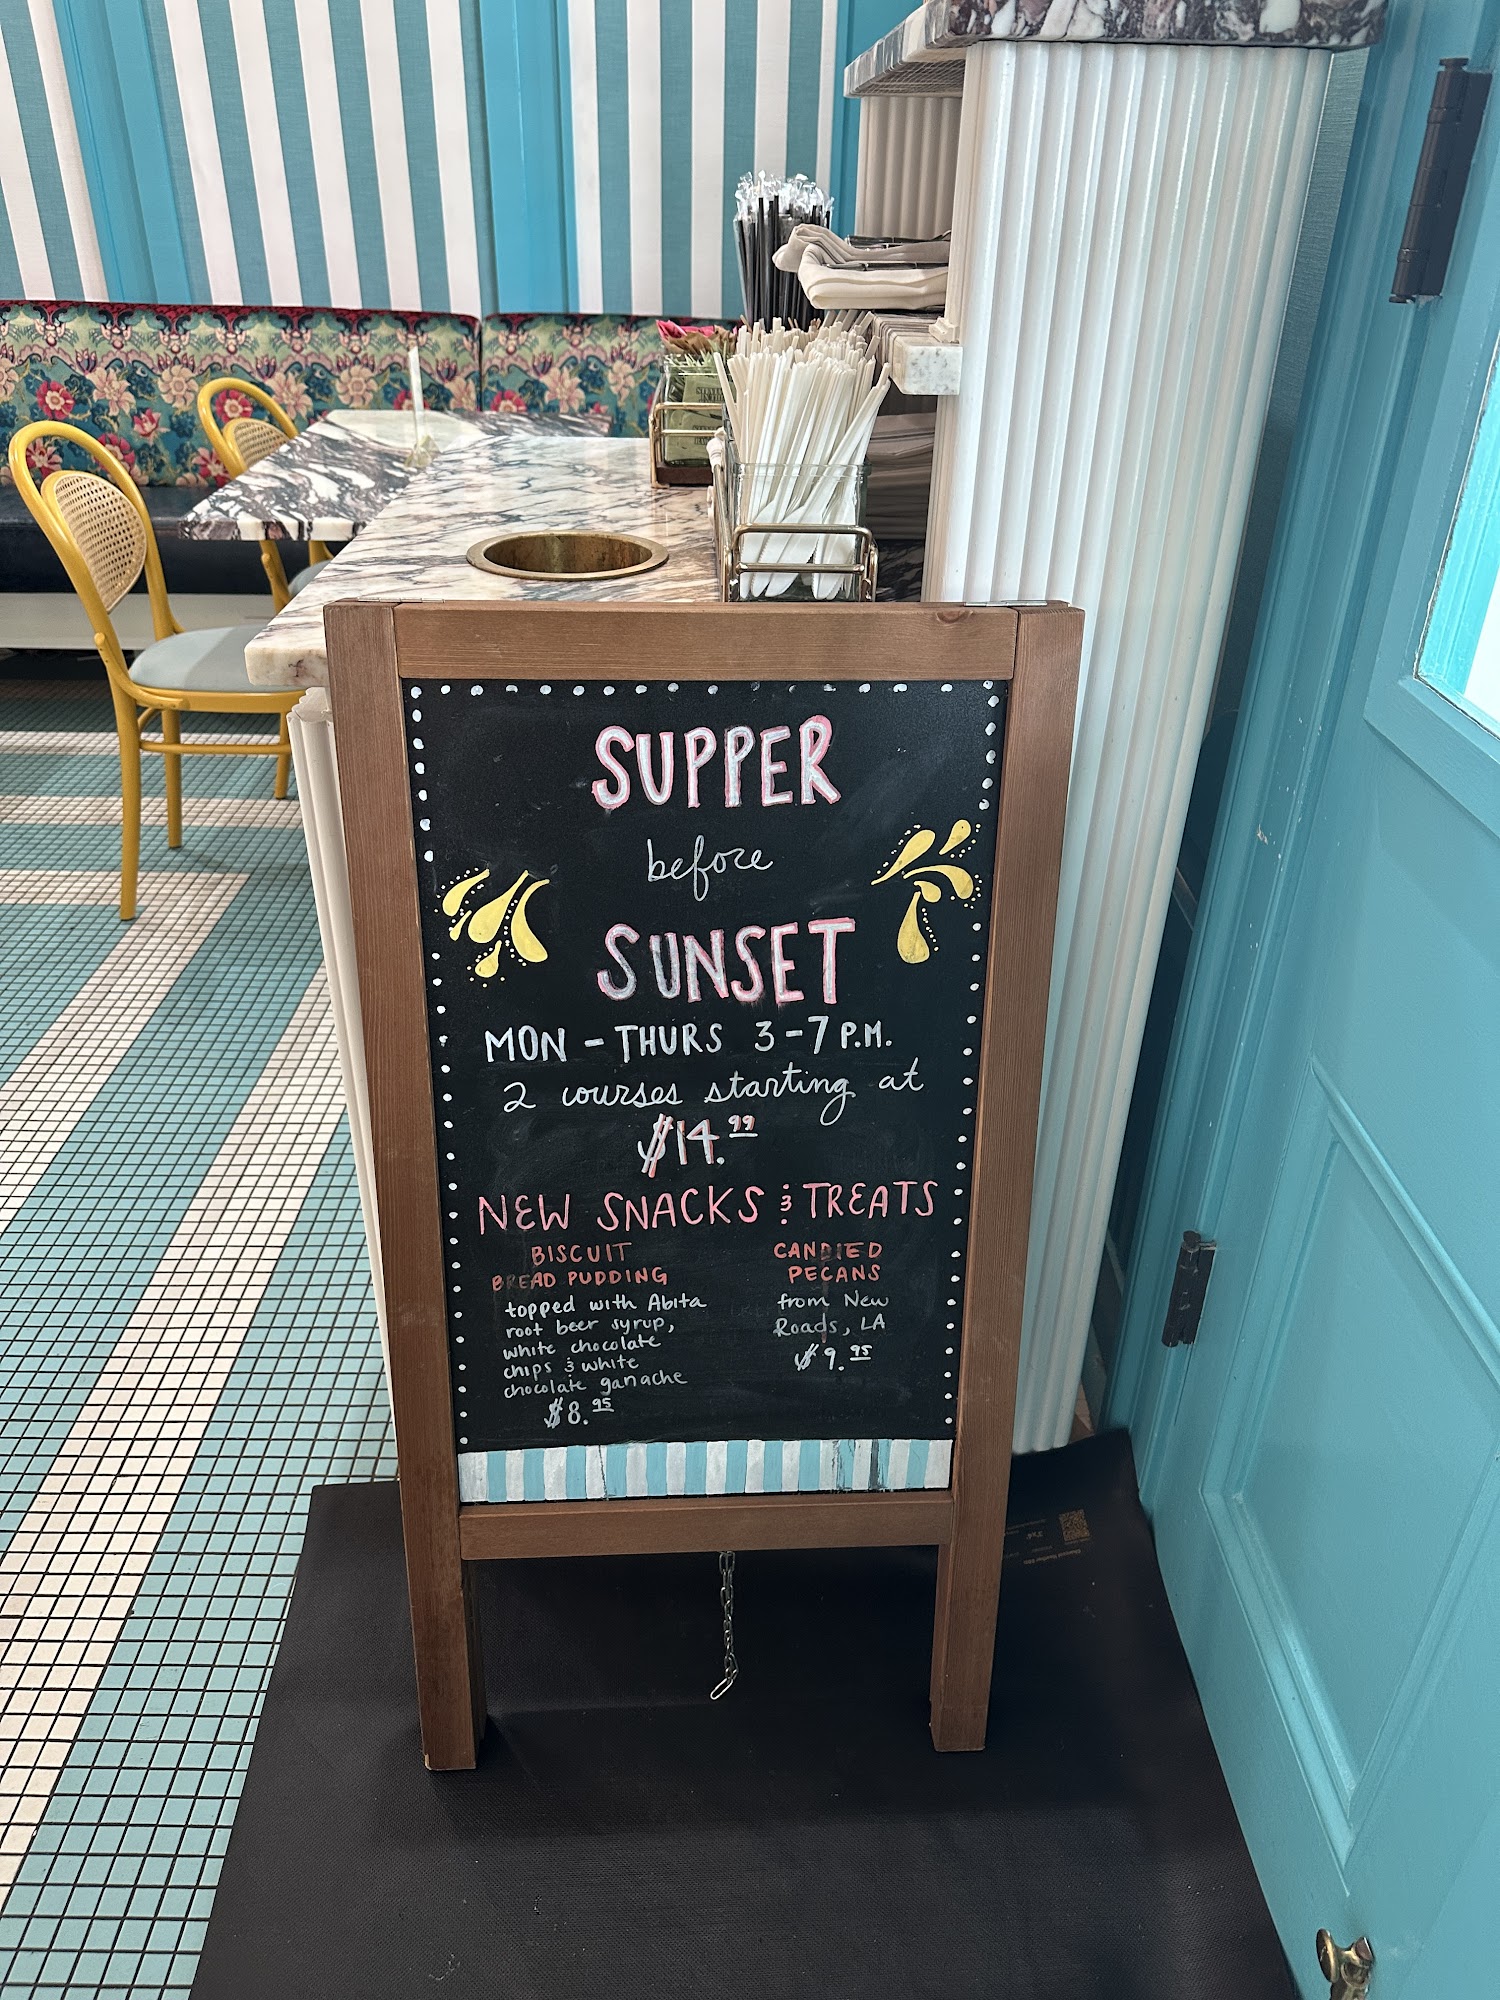 SUPPER
before
SUNSET
MON - THURS 3-7 P.M.
2 courses starting at
$14.99
NEW SNACKS & TREATS
BISCUIT
BREAD PUDDING
topped with Abita
root beer syrup,
white chocolate
chips & white
chocolate ganache
$8.95
CANDIED
PECANS
from New
Roads, LA
$9.95